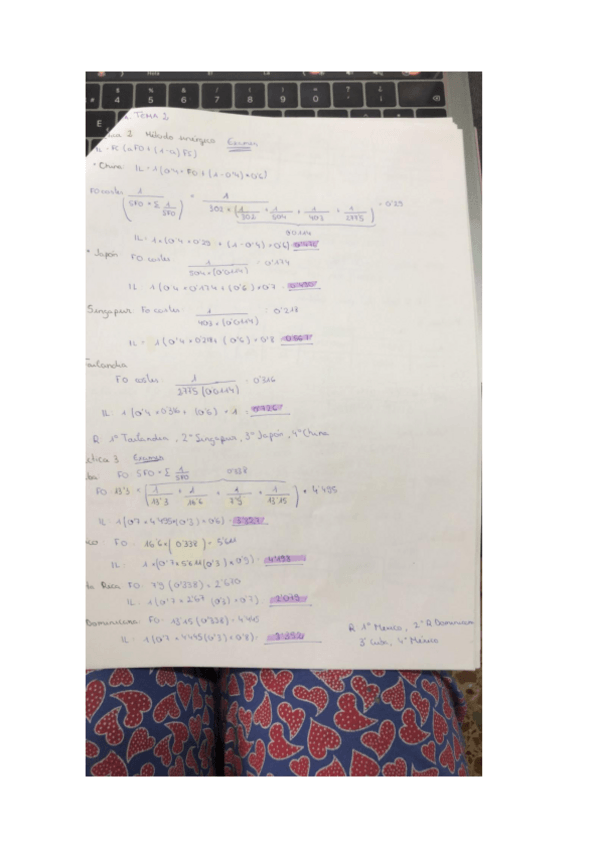 TEMA 2
2 Método sinérgico Examen
IL = FC (αFO + (1-α) FS)
• China: IL = 1 (0'4 + FO + (1-0'4) × 0'6)
FO costes 1 / (SFO × Σ 1/SFO) = 1 / 302 × (1/302 + 1/504 + 1/403 + 1/2775) = 0'29
0'0114
IL = 1 × (0'4 × 0'29 + (1-0'4) × 0'6)
• Japón: FO costes 1 / 504 × (0'0114) = 0'174
IL = 1 (0'4 × 0'174 + (0'6) × 0'7
Singapur: FO costes: 1 / 403 × (0'0114) = 0'218
IL = 1 (0'4 × 0'218 + (0'6) × 0'8
Tailandia
FO costes 1 / 2775 (0'0114) = 0'316
IL = 1 (0'4 × 0'316 + (0'6) × 1 = 0'726
R: 1º Tailandia, 2º Singapur, 3º Japón, 4º China
ctica 3 Examen
ba: FO: SFO × Σ 1/SFO 0'338
FO: 13'3 × (1/13'3 + 1/16'6 + 1/7'9 + 1/13'15) = 4'495
IL = 1 (0'7 × 4'495 × (0'3) × 0'6)
ico: FO: 16'6 × (0'338) = 5'611
IL: 1 × (0'7 × 5'611 (0'3) × 0'9) = 4'198
ta Rica: FO: 7'9 (0'338) = 2'670
IL: 1 (0'7 × 2'67 (0'3) × 0'7) 2'079
Dominicana: FO: 13'15 (0'338) =
IL: 1 (0'7 × 4'445 (0'3) × 0'8) =
R: 1º Mexico, 2º R Dominicana
3º Cuba, 4º México